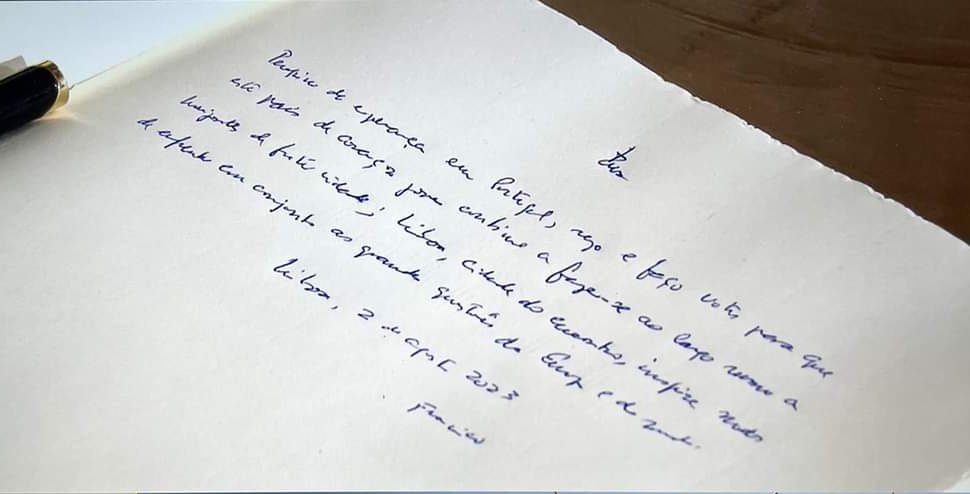 Peregrino de esperança em Portugal, rezo e faço votos para que
este País de coração jovem continue a fazer-se ao largo rumo a
horizontes de fraternidade; Lisboa, cidade do encontro, inspire modos
de enfrentar em conjunto as grandes questões da Europa e do mundo.
Lisboa, 2 de agosto 2023
Francisco